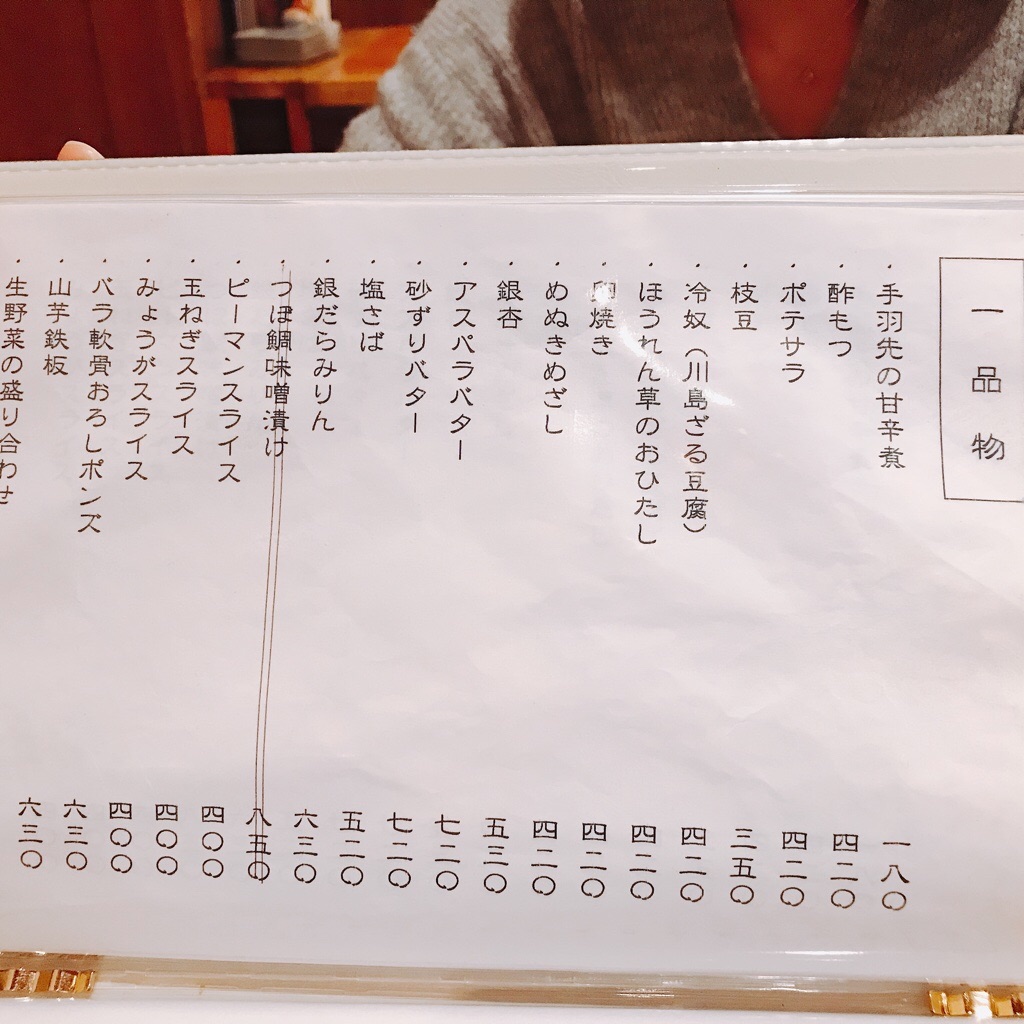 一品物
・手羽先の甘辛煮 一八〇
・酢もつ 四二〇
・ポテサラ 四二〇
・枝豆 三五〇
・冷奴(川島ざる豆腐) 四二〇
・ほうれん草のおひたし 四二〇
・卵焼き 四二〇
・めぬきめざし 四二〇
・銀杏 五三〇
・アスパラバター 七二〇
・砂ずりバター 七二〇
・塩さば 五二〇
・銀だらみりん 六三〇
・つぼ鯛味噌漬け 八五〇
・ピーマンスライス 四〇〇
・玉ねぎスライス 四〇〇
・みょうがスライス 四〇〇
・バラ軟骨おろしポンズ 六三〇
・山芋鉄板 六三〇
・生野菜の盛り合わせ